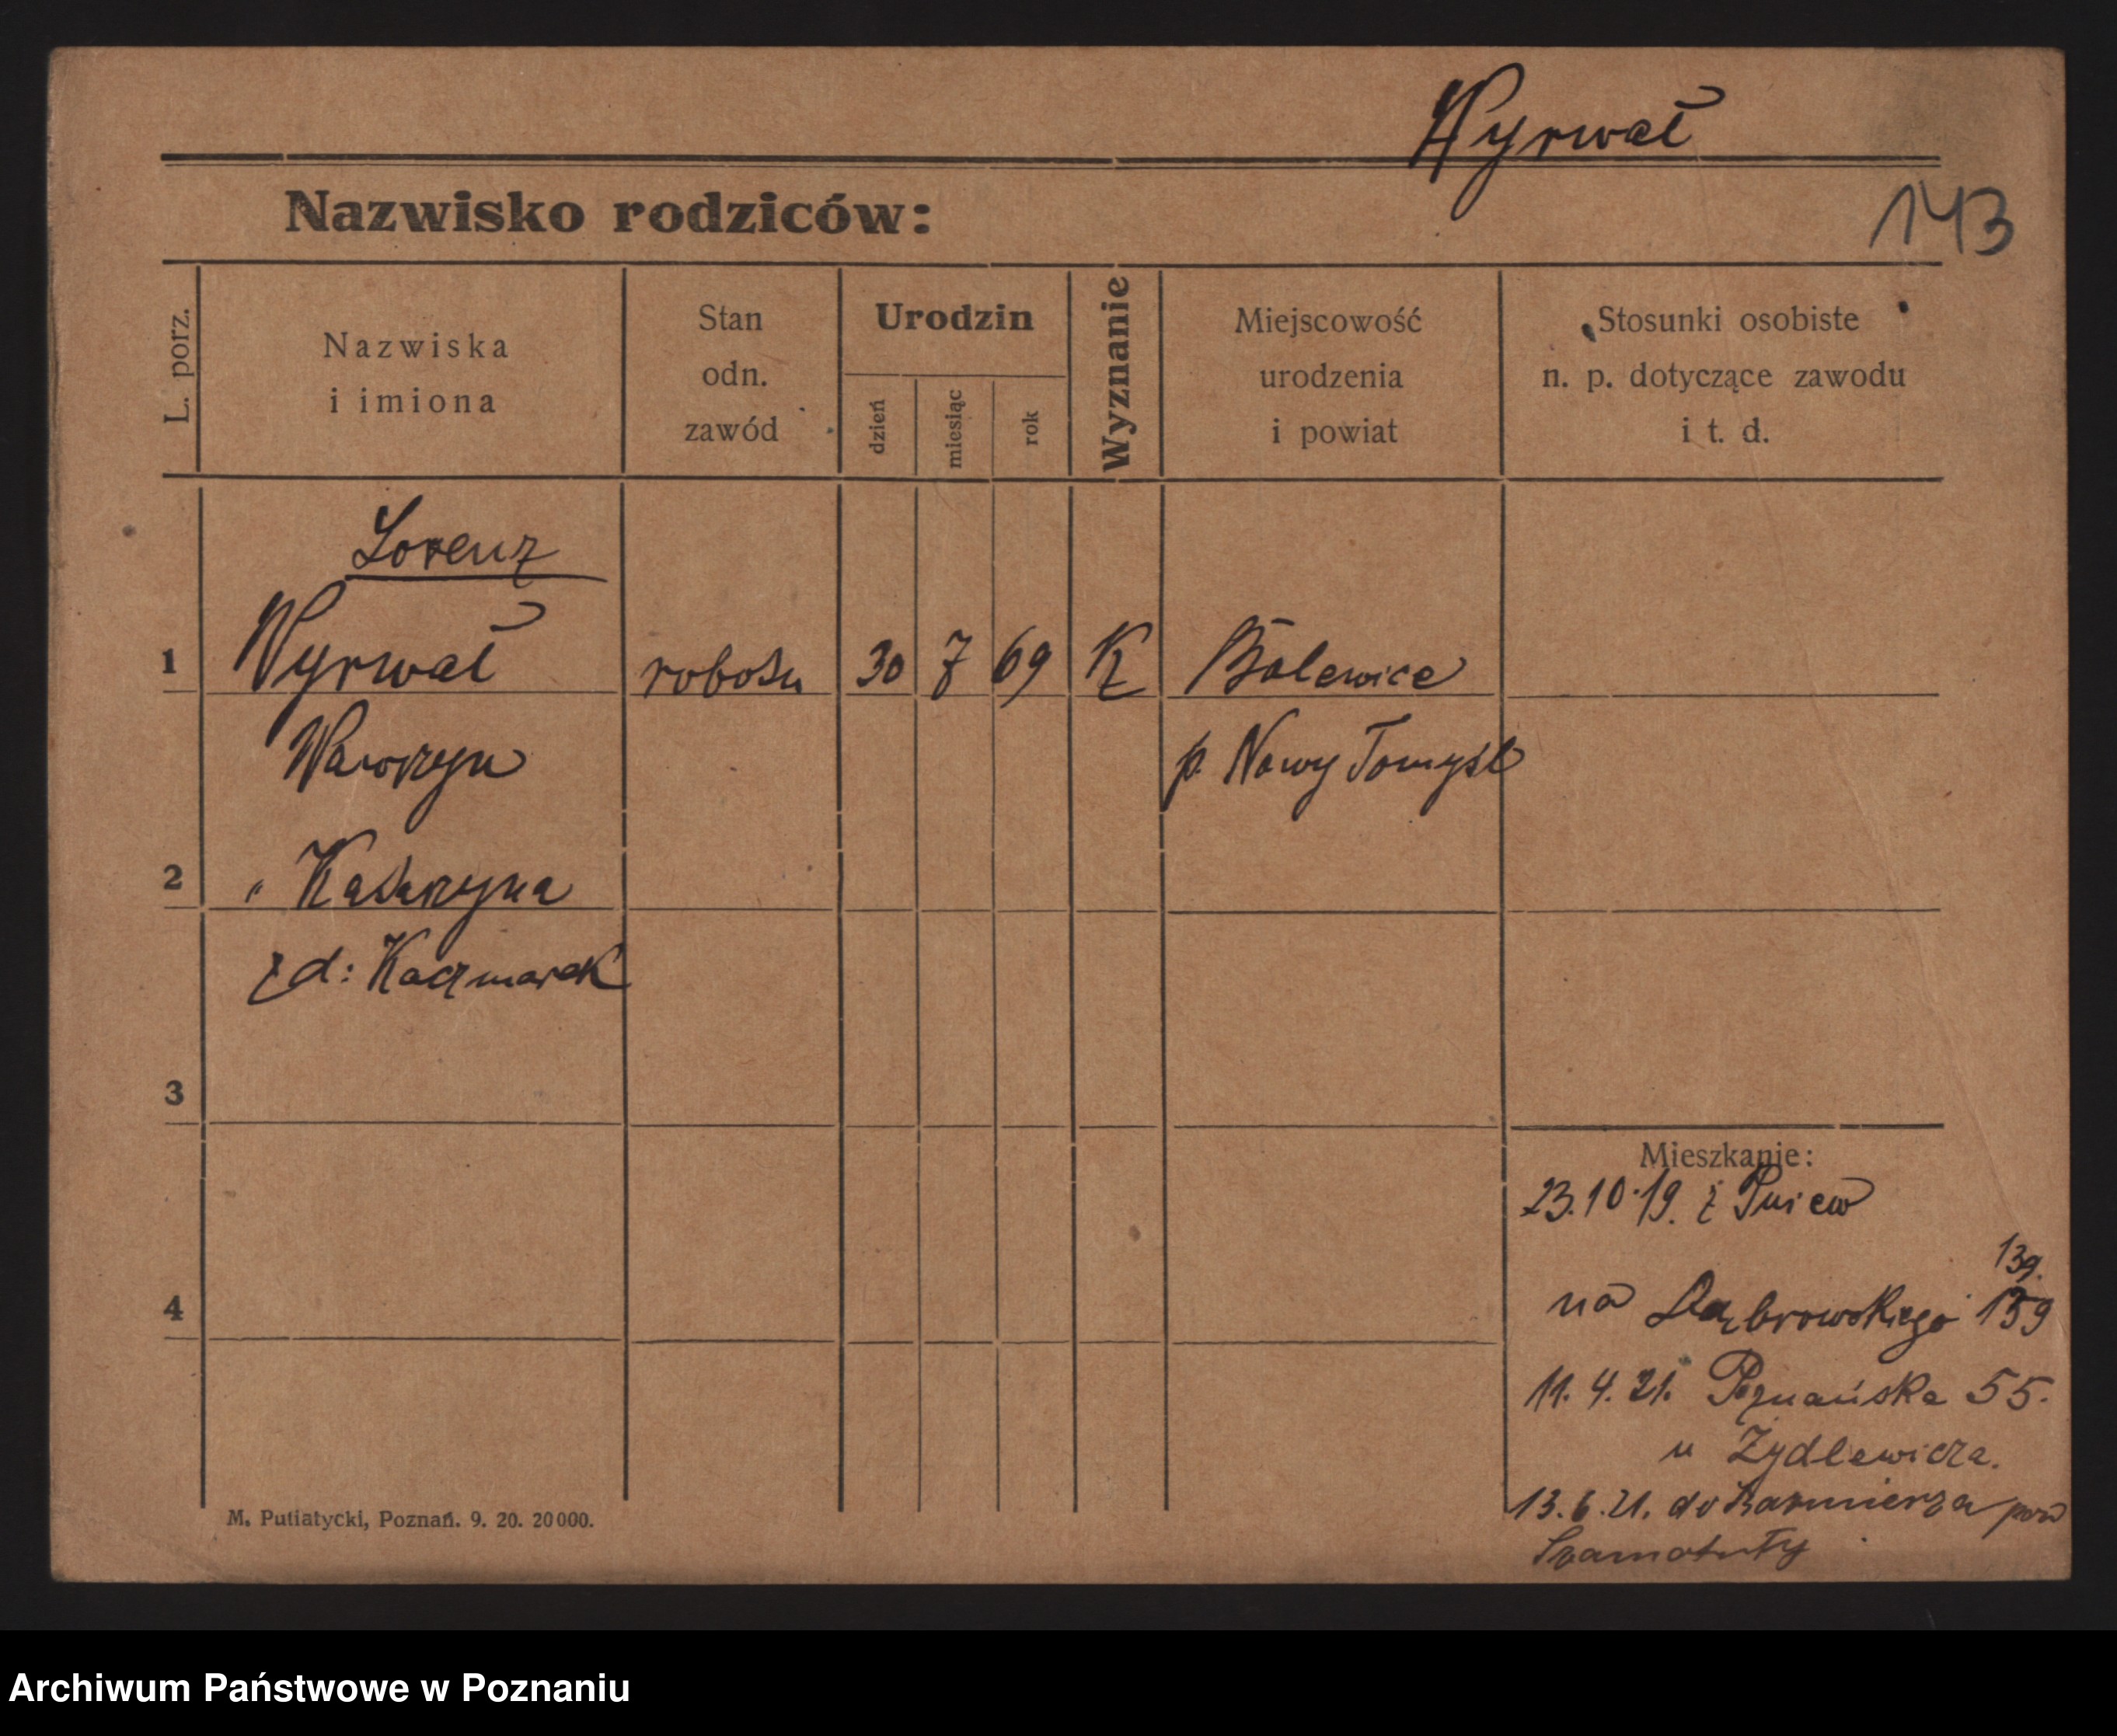 Wyrwał
143
Nazwisko rodziców:
L. porz.
Nazwiska
i imiona
Stan
odn.
zawód
Urodzin
dzień
miesiąc
rok
Wyznanie
Miejscowość
urodzenia
i powiat
Stosunki osobiste
n. p. dotyczące zawodu
i t. d.
Lorenz
1 Wyrwał robotn 30 7 69 K Bolewice
Wawrzyn p. Nowy Tomyśl
2 " Katarzyna
z d: Kaczmarek
3
Mieszkanie:
23.10.19. z Pniew
139.
4 na Dąbrowskiego 139
11. 4. 21. Poznańska 55.
u Żydlewicza.
13. 6. 21. do Kazmierza pow
Szamotuły
M. Putiatycki, Poznań. 9. 20. 20000.
Archiwum Państwowe w Poznaniu